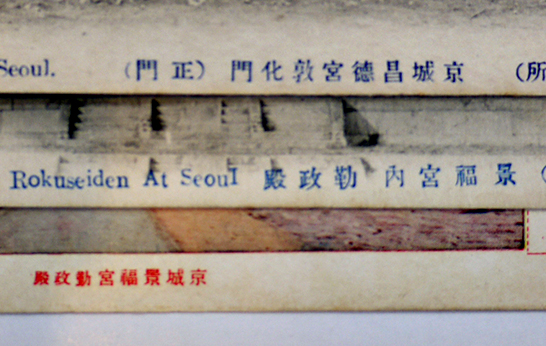 Seoul. 所）京城昌德宮敦化門（正門）
Rokuseiden At Seoul 景福宮內勤政殿
京城景福宮勤政殿